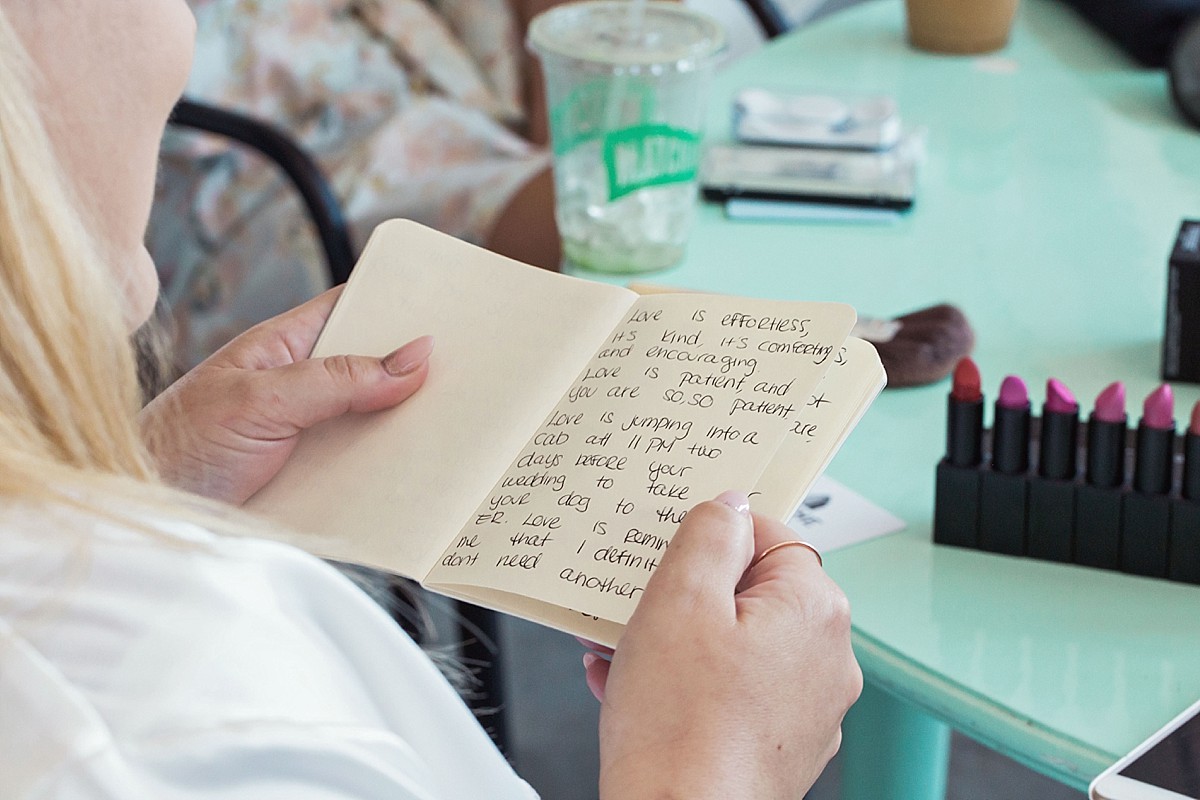 MATCHA
Love is effortless,
it's kind, it's comforting,
and encouraging.
Love is patient, and
you are so, so patient.
Love is jumping into a
cab at 11 PM two
days before your
wedding to take
your dog to the
ER. Love is
me that I
dont need another